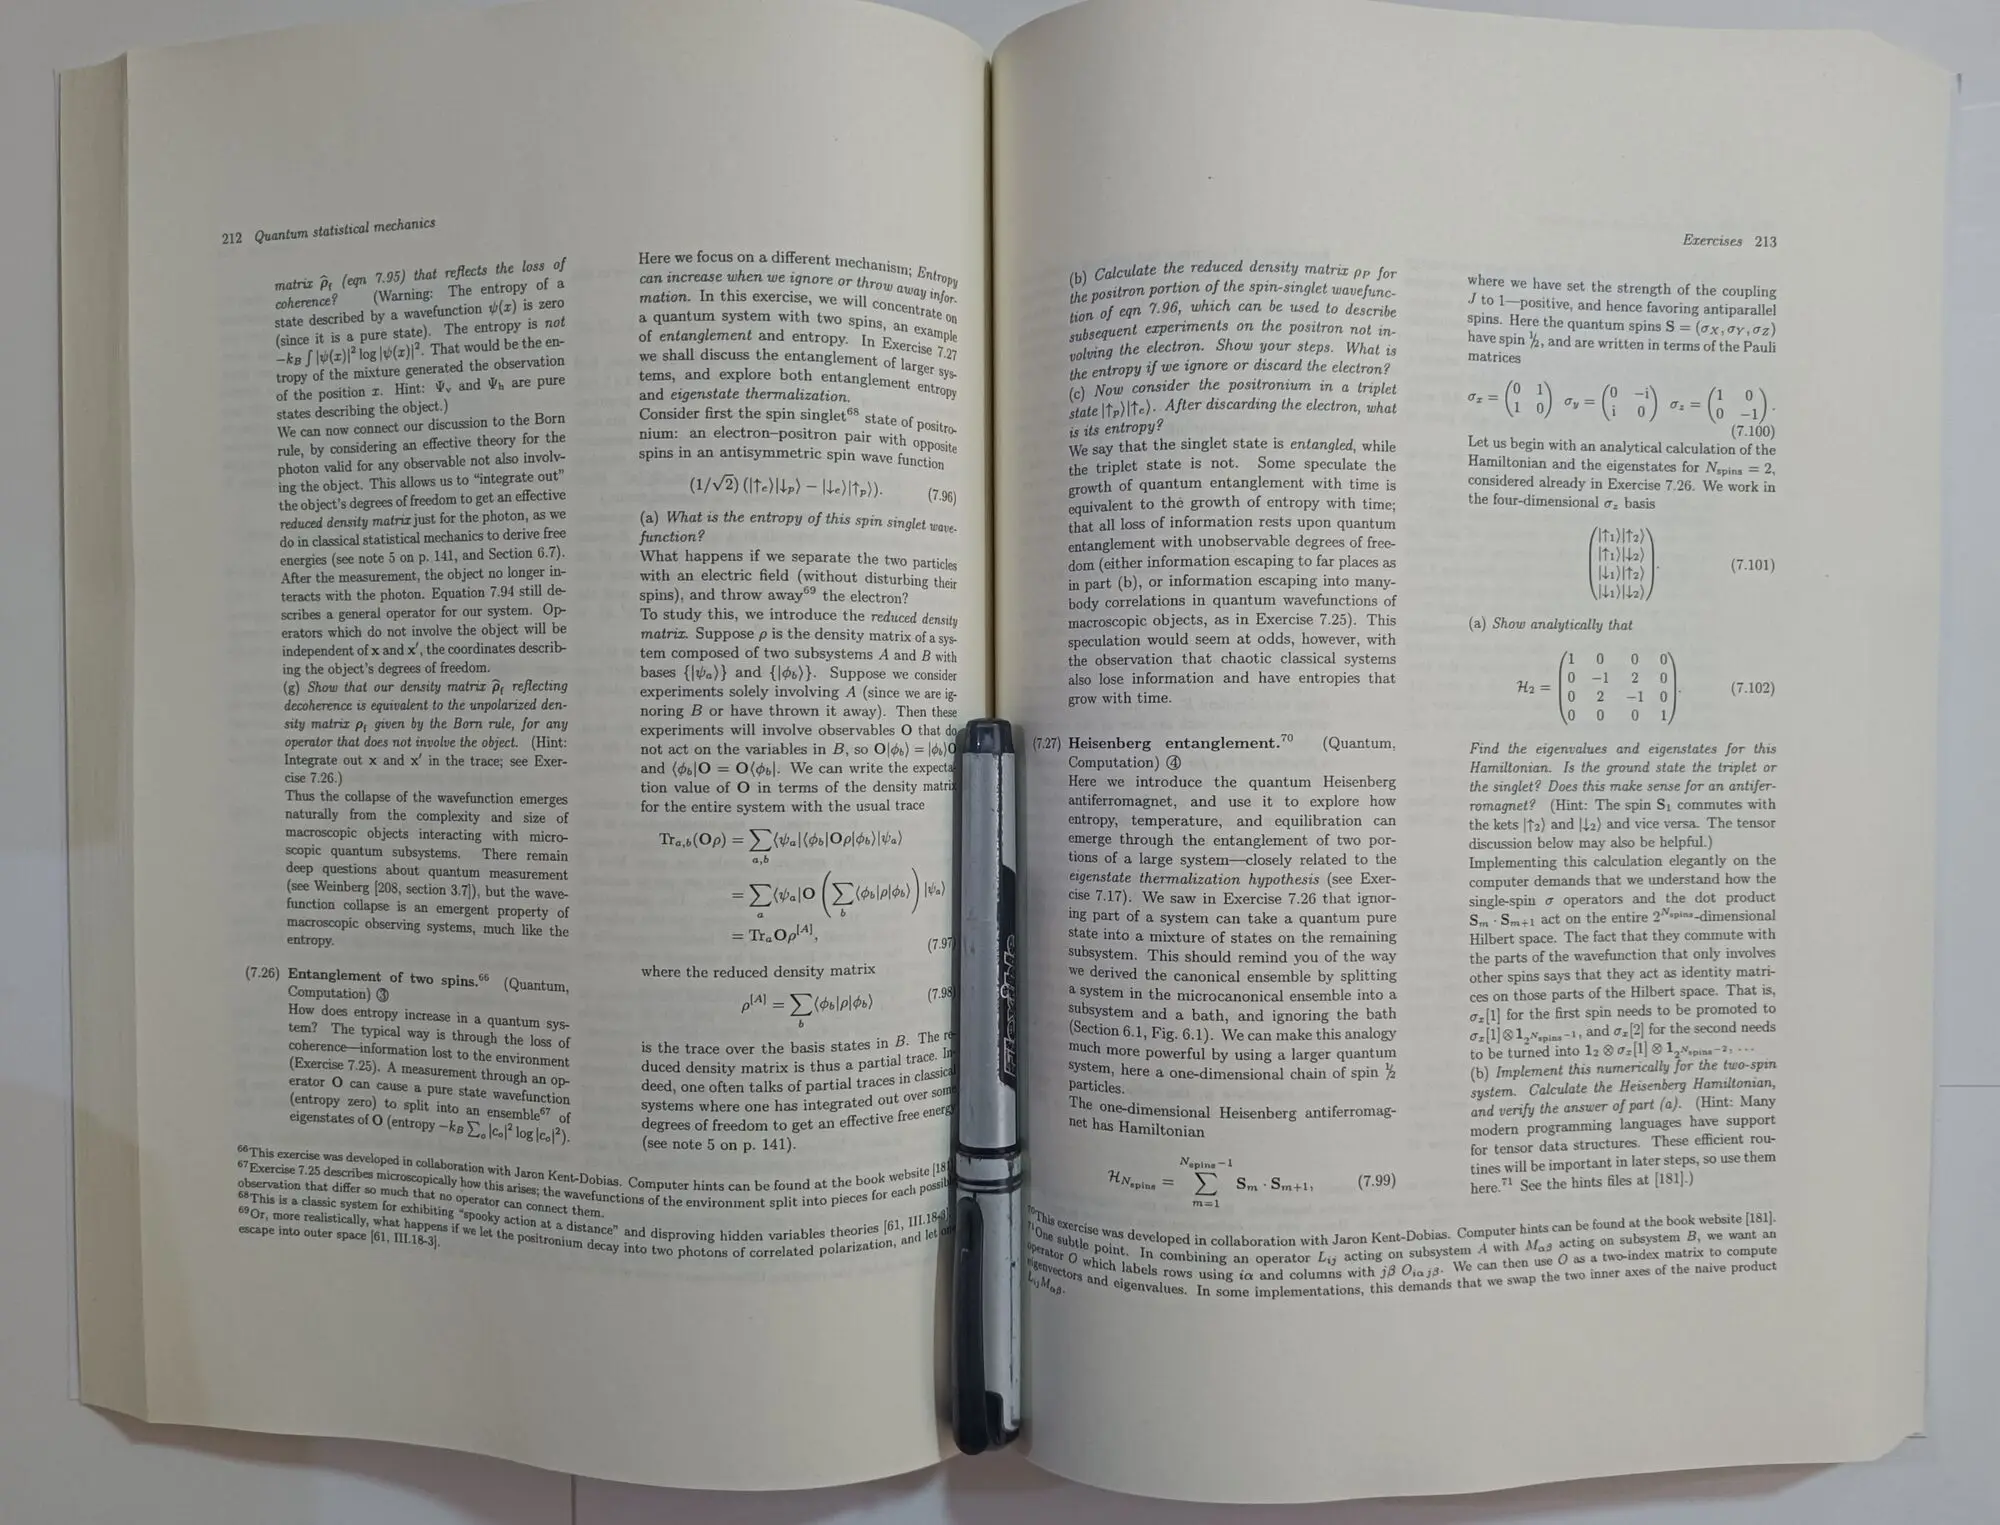 212 Quantum statistical mechanics
matrix ρ̂f (eqn 7.95) that reflects the loss of
coherence? (Warning: The entropy of a
state described by a wavefunction ψ(x) is zero
(since it is a pure state). The entropy is not
−kB ∫ |ψ(x)|² log |ψ(x)|². That would be the en-
tropy of the mixture generated the observation
of the position x. Hint: Ψv and Ψh are pure
states describing the object.)
We can now connect our discussion to the Born
rule, by considering an effective theory for the
photon valid for any observable not also involv-
ing the object. This allows us to “integrate out”
the object's degrees of freedom to get an effective
reduced density matrix just for the photon, as we
do in classical statistical mechanics to derive free
energies (see note 5 on p. 141, and Section 6.7).
After the measurement, the object no longer in-
teracts with the photon. Equation 7.94 still de-
scribes a general operator for our system. Op-
erators which do not involve the object will be
independent of x and x′, the coordinates describ-
ing the object's degrees of freedom.
(g) Show that our density matrix ρ̂f reflecting
decoherence is equivalent to the unpolarized den-
sity matrix ρf given by the Born rule, for any
operator that does not involve the object. (Hint:
Integrate out x and x′ in the trace; see Exer-
cise 7.26.)
Thus the collapse of the wavefunction emerges
naturally from the complexity and size of
macroscopic objects interacting with micro-
scopic quantum subsystems. There remain
deep questions about quantum measurement
(see Weinberg [208, section 3.7]), but the wave-
function collapse is an emergent property of
macroscopic observing systems, much like the
entropy.
(7.26) Entanglement of two spins.⁶⁶ (Quantum,
Computation) ③
How does entropy increase in a quantum sys-
tem? The typical way is through the loss of
coherence—information lost to the environment
(Exercise 7.25). A measurement through an op-
erator O can cause a pure state wavefunction
(entropy zero) to split into an ensemble⁶⁷ of
eigenstates of O (entropy −kB ∑o |co|² log |co|²).
Here we focus on a different mechanism; Entropy
can increase when we ignore or throw away infor-
mation. In this exercise, we will concentrate on
a quantum system with two spins, an example
of entanglement and entropy. In Exercise 7.27
we shall discuss the entanglement of larger sys-
tems, and explore both entanglement entropy
and eigenstate thermalization.
Consider first the spin singlet⁶⁸ state of positro-
nium: an electron–positron pair with opposite
spins in an antisymmetric spin wave function
(1/√2) (|↑e⟩|↓p⟩ − |↓e⟩|↑p⟩). (7.96)
(a) What is the entropy of this spin singlet wave-
function?
What happens if we separate the two particles
with an electric field (without disturbing their
spins), and throw away⁶⁹ the electron?
To study this, we introduce the reduced density
matrix. Suppose ρ is the density matrix of a sys-
tem composed of two subsystems A and B with
bases {|ψa⟩} and {|ϕb⟩}. Suppose we consider
experiments solely involving A (since we are ig-
noring B or have thrown it away). Then these
experiments will involve observables O that do
not act on the variables in B, so O|ϕb⟩ = |ϕb⟩O
and ⟨ϕb|O = O⟨ϕb|. We can write the expecta-
tion value of O in terms of the density matrix
for the entire system with the usual trace
Tra,b(Oρ) = ∑a,b ⟨ψa|⟨ϕb|Oρ|ϕb⟩|ψa⟩
= ∑a ⟨ψa|O (∑b ⟨ϕb|ρ|ϕb⟩) |ψa⟩
= TraOρ[A], (7.97)
where the reduced density matrix
ρ[A] = ∑b ⟨ϕb|ρ|ϕb⟩ (7.98)
is the trace over the basis states in B. The re-
duced density matrix is thus a partial trace. In-
deed, one often talks of partial traces in classical
systems where one has integrated out over some
degrees of freedom to get an effective free energy
(see note 5 on p. 141).
⁶⁶This exercise was developed in collaboration with Jaron Kent-Dobias. Computer hints can be found at the book website [181
⁶⁷Exercise 7.25 describes microscopically how this arises; the wavefunctions of the environment split into pieces for each possib
observation that differ so much that no operator can connect them.
⁶⁸This is a classic system for exhibiting “spooky action at a distance” and disproving hidden variables theories [61, III.18-3].
⁶⁹Or, more realistically, what happens if we let the positronium decay into two photons of correlated polarization, and let one
escape into outer space [61, III.18-3].
Flexible
Exercises 213
(b) Calculate the reduced density matrix ρP for
the positron portion of the spin-singlet wavefunc-
tion of eqn 7.96, which can be used to describe
subsequent experiments on the positron not in-
volving the electron. Show your steps. What is
the entropy if we ignore or discard the electron?
(c) Now consider the positronium in a triplet
state |↑p⟩|↑e⟩. After discarding the electron, what
is its entropy?
We say that the singlet state is entangled, while
the triplet state is not. Some speculate the
growth of quantum entanglement with time is
equivalent to the growth of entropy with time;
that all loss of information rests upon quantum
entanglement with unobservable degrees of free-
dom (either information escaping to far places as
in part (b), or information escaping into many-
body correlations in quantum wavefunctions of
macroscopic objects, as in Exercise 7.25). This
speculation would seem at odds, however, with
the observation that chaotic classical systems
also lose information and have entropies that
grow with time.
(7.27) Heisenberg entanglement.⁷⁰ (Quantum,
Computation) ④
Here we introduce the quantum Heisenberg
antiferromagnet, and use it to explore how
entropy, temperature, and equilibration can
emerge through the entanglement of two por-
tions of a large system—closely related to the
eigenstate thermalization hypothesis (see Exer-
cise 7.17). We saw in Exercise 7.26 that ignor-
ing part of a system can take a quantum pure
state into a mixture of states on the remaining
subsystem. This should remind you of the way
we derived the canonical ensemble by splitting
a system in the microcanonical ensemble into a
subsystem and a bath, and ignoring the bath
(Section 6.1, Fig. 6.1). We can make this analogy
much more powerful by using a larger quantum
system, here a one-dimensional chain of spin ½
particles.
The one-dimensional Heisenberg antiferromag-
net has Hamiltonian
ℋNspins = ∑m=1^Nspins−1 Sm · Sm+1, (7.99)
where we have set the strength of the coupling
J to 1—positive, and hence favoring antiparallel
spins. Here the quantum spins S = (σX, σY, σZ)
have spin ½, and are written in terms of the Pauli
matrices
σx = (0 1; 1 0) σy = (0 −i; i 0) σz = (1 0; 0 −1).
(7.100)
Let us begin with an analytical calculation of the
Hamiltonian and the eigenstates for Nspins = 2,
considered already in Exercise 7.26. We work in
the four-dimensional σz basis
(|↑1⟩|↑2⟩
|↑1⟩|↓2⟩
|↓1⟩|↑2⟩
|↓1⟩|↓2⟩). (7.101)
(a) Show analytically that
ℋ2 = (1 0 0 0
0 −1 2 0
0 2 −1 0
0 0 0 1). (7.102)
Find the eigenvalues and eigenstates for this
Hamiltonian. Is the ground state the triplet or
the singlet? Does this make sense for an antifer-
romagnet? (Hint: The spin S1 commutes with
the kets |↑2⟩ and |↓2⟩ and vice versa. The tensor
discussion below may also be helpful.)
Implementing this calculation elegantly on the
computer demands that we understand how the
single-spin σ operators and the dot product
Sm · Sm+1 act on the entire 2^Nspins-dimensional
Hilbert space. The fact that they commute with
the parts of the wavefunction that only involves
other spins says that they act as identity matri-
ces on those parts of the Hilbert space. That is,
σz[1] for the first spin needs to be promoted to
σz[1]⊗1₂Nspins−1, and σz[2] for the second needs
to be turned into 1₂ ⊗ σz[1] ⊗ 1₂Nspins−2, ...
(b) Implement this numerically for the two-spin
system. Calculate the Heisenberg Hamiltonian,
and verify the answer of part (a). (Hint: Many
modern programming languages have support
for tensor data structures. These efficient rou-
tines will be important in later steps, so use them
here.⁷¹ See the hints files at [181].)
⁷⁰This exercise was developed in collaboration with Jaron Kent-Dobias. Computer hints can be found at the book website [181].
⁷¹One subtle point. In combining an operator Lij acting on subsystem A with Mαβ acting on subsystem B, we want an
operator O which labels rows using iα and columns with jβ Oiαjβ. We can then use O as a two-index matrix to compute
eigenvectors and eigenvalues. In some implementations, this demands that we swap the two inner axes of the naive product
LijMαβ.